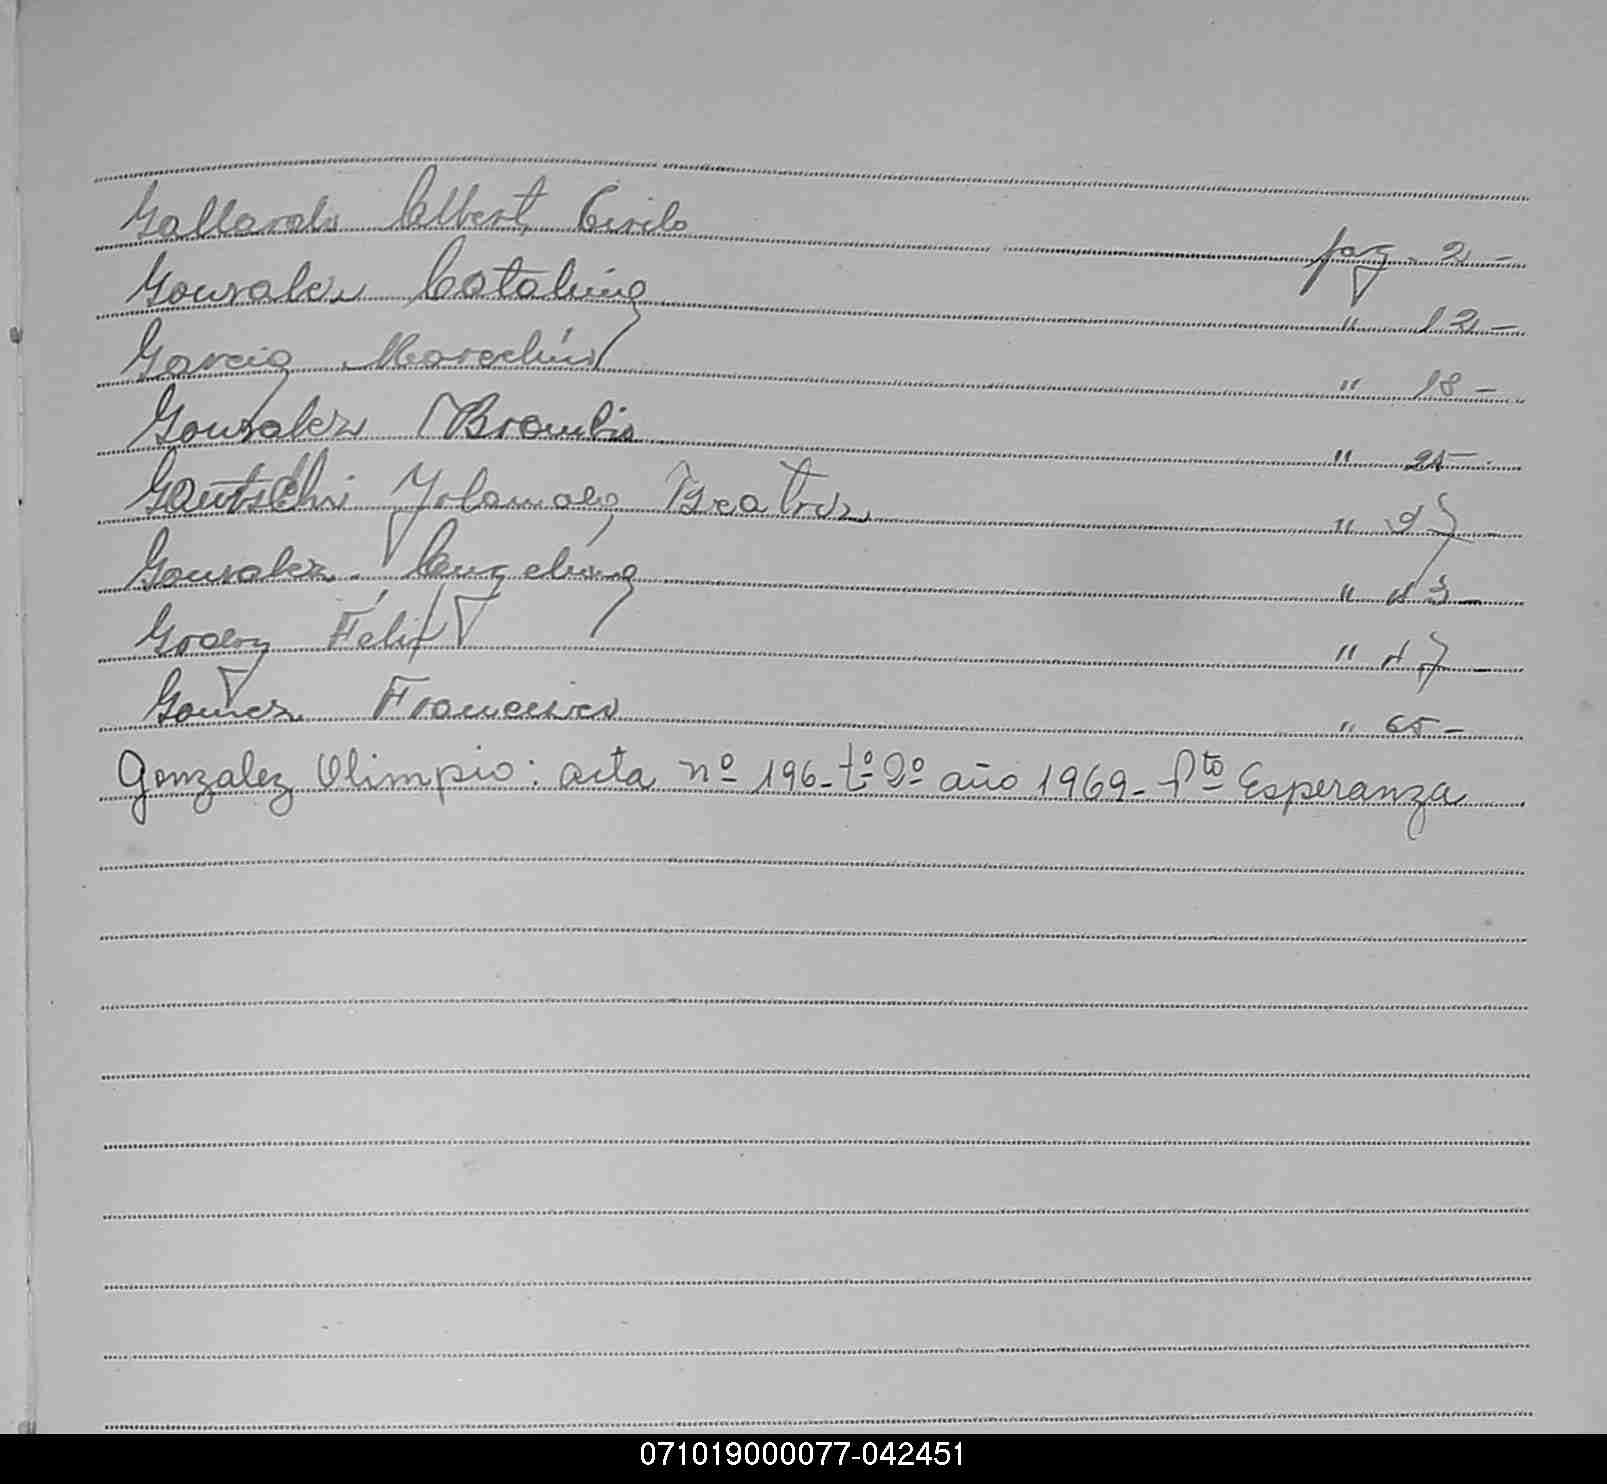 Gallardo Albert, Cirilo pag. 2 -
Gonzalez Catalina " 12 -
Garcia Marcelino " 18 -
Gonzalez " 25 -
Gautschi Yolanda Beatriz " 27 -
Gonzalez Angelina " 43 -
Godoy Félix " 47 -
Gomez Francisco " 65 -
Gonzalez Olimpio: acta nº 196 - tº 2º año 1969 - Pto Esperanza
071019000077-042451